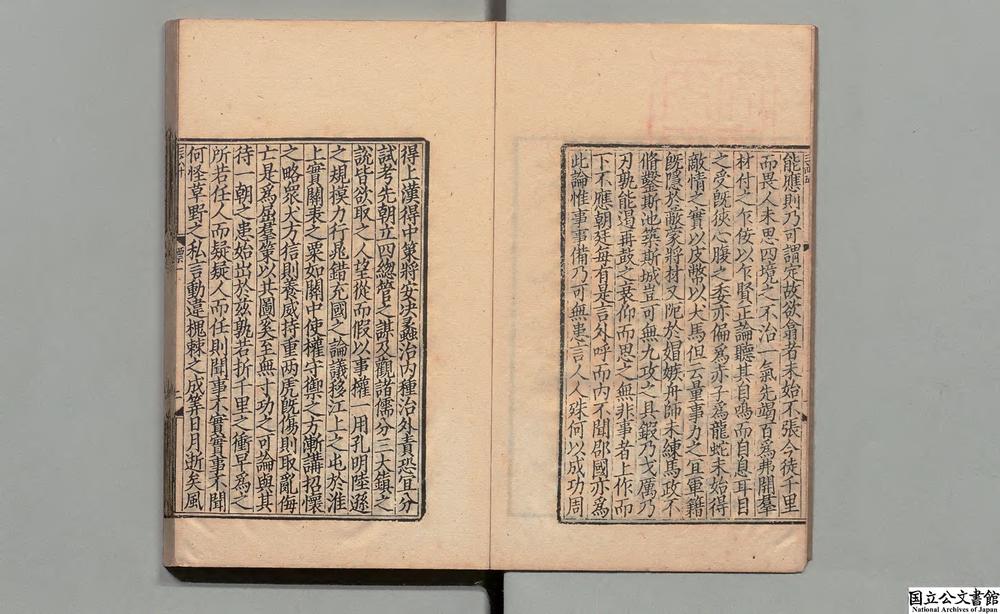 能應則乃可謂定故欲翕者未始不張今徒千里
而畏人未思四境之不治一氣先竭百爲弗開羣
材付之乍佞以乍賢正論聽其自鳴而自息耳目
之受旣狹心腹之委亦偏爲赤子爲龍蛇未始得
敵情之實以皮幣以犬馬但云量事力之宜軍籍
旣隱於蔽蒙將材又阨於媢嫉舟師未練馬政不
脩鑿斯池築斯城豈可無九攻之具鍛乃戈厲乃
刃孰能遏再鼓之衰仰而思之無非事者上作而
下不應朝廷每有是言外呼而内不聞邵國亦爲
此論惟事事備乃可無患言人人殊何以成功周
得上漢得中策將安決蠡治内種治外責恐宜分
試考先朝立四緫管之謀及觀諸儒分三大鎮之
說皆欲取之人望從而假以事權一用孔明陸遜
之規模力行晁錯充國之論議移江上之屯於淮
上實關表之粟如關中使權守禦之方漸講招懷
之略衆大方信則養威持重两虎旣傷則取亂侮
亡是爲屈羣策以其圖奚至無寸功之可論與其
待一朝之患始出於兹孰若折千里之衝早爲之
所若任人而疑疑人而任則聞事不實實事不聞
何怪草野之私言動違槐棘之成筭日月逝矣風
国立公文書館
National Archives of Japan